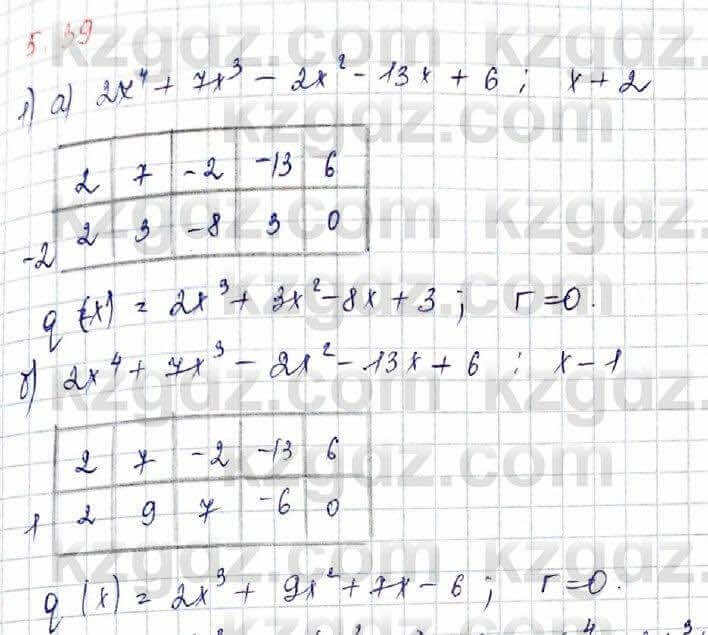 5.39
1) а) 2x⁴ + 7x³ - 2x² - 13x + 6 ; x + 2
2 7 -2 -13 6
-2 2 3 -8 3 0
q(x) = 2x³ + 3x² - 8x + 3 ; r = 0.
б) 2x⁴ + 7x³ - 2x² - 13x + 6 : x - 1
2 7 -2 -13 6
1 2 9 7 -6 0
q(x) = 2x³ + 9x² + 7x - 6 ; r = 0.
kzgdz.com
kzgdz.com
kzgdz.com
kzgdz.com
kzgdz.com
kzgdz.com
kzgdz.com